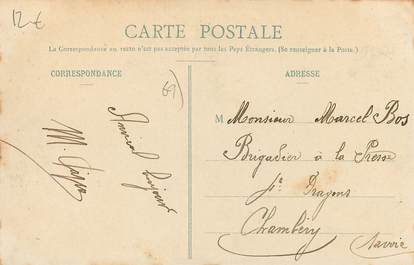 12 €
CARTE POSTALE
La Correspondance au recto n'est pas acceptée par tous les Pays Étrangers. (Se renseigner à la Poste.)
CORRESPONDANCE
ADRESSE
Amical bonjour
M.
M Monsieur Marcel Bos
Brigadier à la
Dragons
Chambéry
Savoie